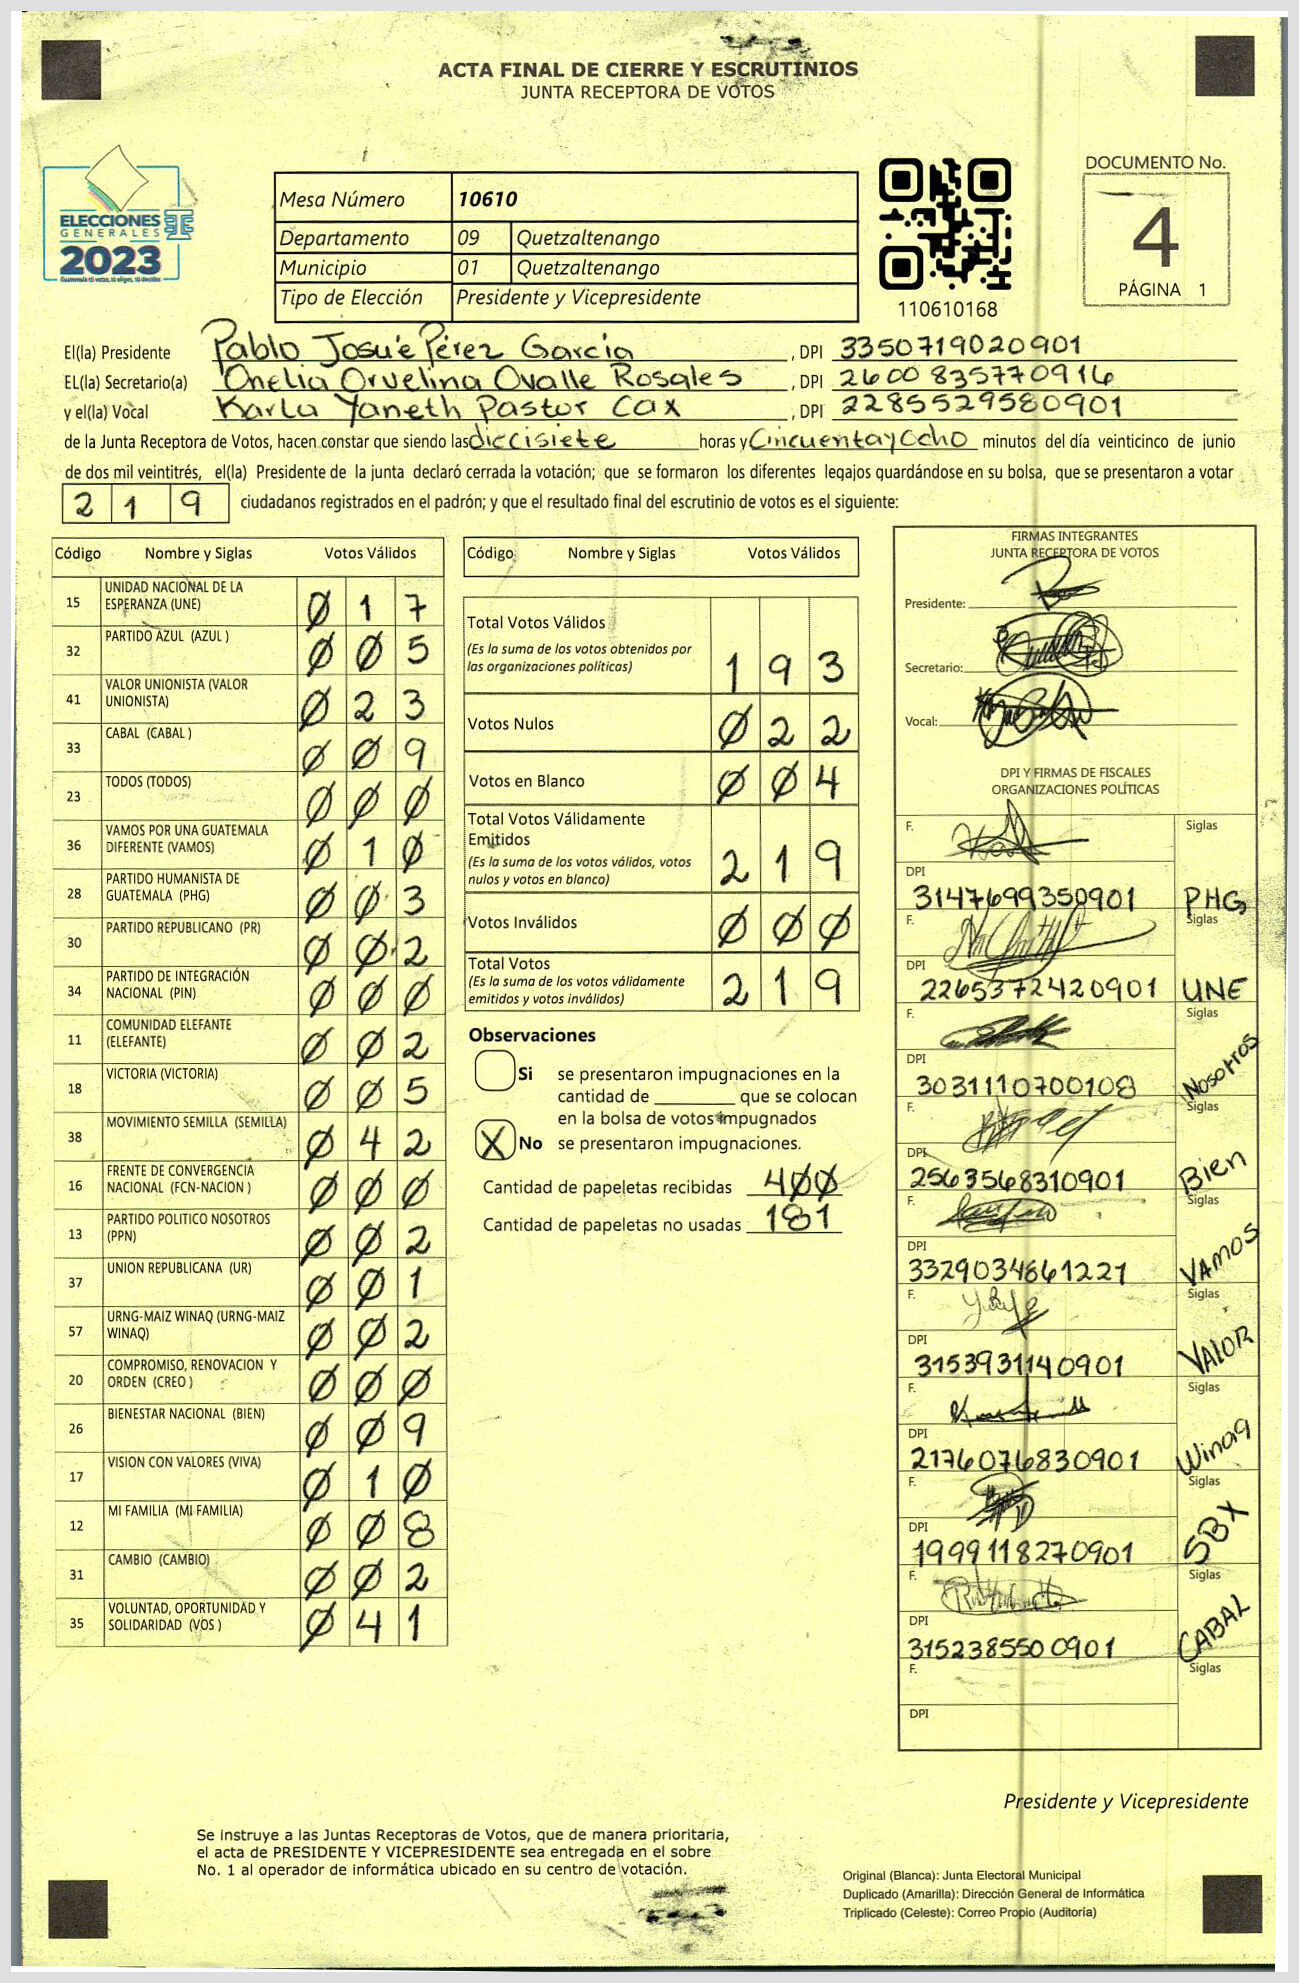 ACTA FINAL DE CIERRE Y ESCRUTINIOS
JUNTA RECEPTORA DE VOTOS
ELECCIONES
GENERALES
2023
Guatemala tú votas, tú eliges, tú decides
Mesa Número 10610
Departamento 09 Quetzaltenango
Municipio 01 Quetzaltenango
Tipo de Elección Presidente y Vicepresidente
110610168
DOCUMENTO No.
4
PÁGINA 1
El(la) Presidente Pablo Josué Pérez García , DPI 3350719020901
EL(la) Secretario(a) Onelia Orvelina Ovalle Rosales , DPI 2600835770916
y el(la) Vocal Karla Yaneth Pastor Cax , DPI 2285529580901
de la Junta Receptora de Votos, hacen constar que siendo las diecisiete horas y Cincuenta y Ocho minutos del día veinticinco de junio
de dos mil veintitrés, el(la) Presidente de la junta declaró cerrada la votación; que se formaron los diferentes legajos guardándose en su bolsa, que se presentaron a votar
219 ciudadanos registrados en el padrón; y que el resultado final del escrutinio de votos es el siguiente:
Código Nombre y Siglas Votos Válidos
15 UNIDAD NACIONAL DE LA ESPERANZA (UNE) 0 1 7
32 PARTIDO AZUL (AZUL ) 0 0 5
41 VALOR UNIONISTA (VALOR UNIONISTA) 0 2 3
33 CABAL (CABAL ) 0 0 9
23 TODOS (TODOS) 0 0 0
36 VAMOS POR UNA GUATEMALA DIFERENTE (VAMOS) 0 1 0
28 PARTIDO HUMANISTA DE GUATEMALA (PHG) 0 0 3
30 PARTIDO REPUBLICANO (PR) 0 0 2
34 PARTIDO DE INTEGRACIÓN NACIONAL (PIN) 0 0 0
11 COMUNIDAD ELEFANTE (ELEFANTE) 0 0 2
18 VICTORIA (VICTORIA) 0 0 5
38 MOVIMIENTO SEMILLA (SEMILLA) 0 4 2
16 FRENTE DE CONVERGENCIA NACIONAL (FCN-NACION ) 0 0 0
13 PARTIDO POLITICO NOSOTROS (PPN) 0 0 2
37 UNION REPUBLICANA (UR) 0 0 1
57 URNG-MAIZ WINAQ (URNG-MAIZ WINAQ) 0 0 2
20 COMPROMISO, RENOVACION Y ORDEN (CREO ) 0 0 0
26 BIENESTAR NACIONAL (BIEN) 0 0 9
17 VISION CON VALORES (VIVA) 0 1 0
12 MI FAMILIA (MI FAMILIA) 0 0 8
31 CAMBIO (CAMBIO) 0 0 2
35 VOLUNTAD, OPORTUNIDAD Y SOLIDARIDAD (VOS ) 0 4 1
Código Nombre y Siglas Votos Válidos
Total Votos Válidos
(Es la suma de los votos obtenidos por las organizaciones políticas) 1 9 3
Votos Nulos 0 2 2
Votos en Blanco 0 0 4
Total Votos Válidamente Emitidos
(Es la suma de los votos válidos, votos nulos y votos en blanco) 2 1 9
Votos Inválidos 0 0 0
Total Votos
(Es la suma de los votos válidamente emitidos y votos inválidos) 2 1 9
Observaciones
Si se presentaron impugnaciones en la
cantidad de ________ que se colocan
en la bolsa de votos impugnados
X No se presentaron impugnaciones.
Cantidad de papeletas recibidas 400
Cantidad de papeletas no usadas 181
FIRMAS INTEGRANTES
JUNTA RECEPTORA DE VOTOS
Presidente:
Secretario:
Vocal:
DPI Y FIRMAS DE FISCALES
ORGANIZACIONES POLÍTICAS
F. Siglas
DPI 3147699350901 PHG
F. Siglas
DPI 2265372420901 UNE
F. Siglas
DPI 3031110700108 Nosotros
F. Siglas
DPI 2563568310901 Bien
F. Siglas
DPI 3329034861221 VAMOS
F. Siglas
DPI 3153931140901 VALOR
F. Siglas
DPI 2176076830901 Winaq
F. Siglas
DPI 1999118270901 SBX
F. Siglas
DPI 3152385500901 CABAL
F. Siglas
DPI
Presidente y Vicepresidente
Se instruye a las Juntas Receptoras de Votos, que de manera prioritaria,
el acta de PRESIDENTE Y VICEPRESIDENTE sea entregada en el sobre
No. 1 al operador de informática ubicado en su centro de votación.
Original (Blanca): Junta Electoral Municipal
Duplicado (Amarilla): Dirección General de Informática
Triplicado (Celeste): Correo Propio (Auditoría)